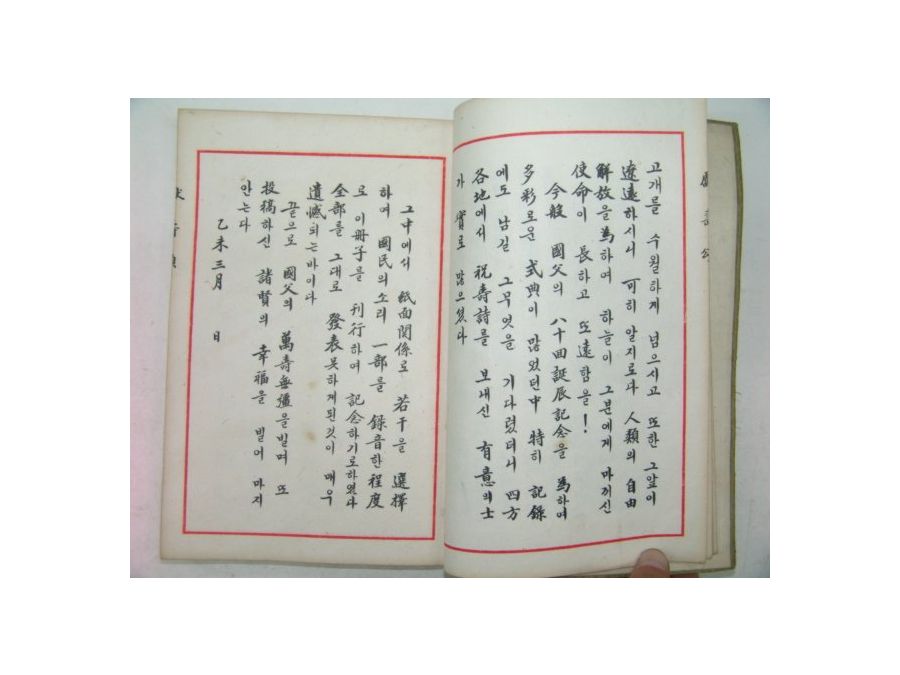 고개를 수월하게 넘으시고 또한 그앞이
遼遠하시니 可히 알지로다 人類의 自由
解放을 爲하여 하늘이 그분에게 마끼신
使命이 長하고 또 遠함을!
今般 國父의 八十回誕辰記念을 爲하여
多彩로운 式典이 많었던中 特히 記錄
에도 남길 그무엇을 기다렸더니 四方
各地에서 祝壽詩를 보내신 有意의士
가 實로 많으셨다
그中에서 紙面関係로 若干을 選擇
하여 國民의소리 一部를 錄音한程度
로 이冊子를 刊行하여 記念하기로하였다
全部를 그대로 發表못하게된것이 매우
遺憾되는바이다
끝으로 國父의 萬壽無疆을빌며 또
投稿하신 諸賢의 幸福을 빌어 마지
안는다
乙未三月 日